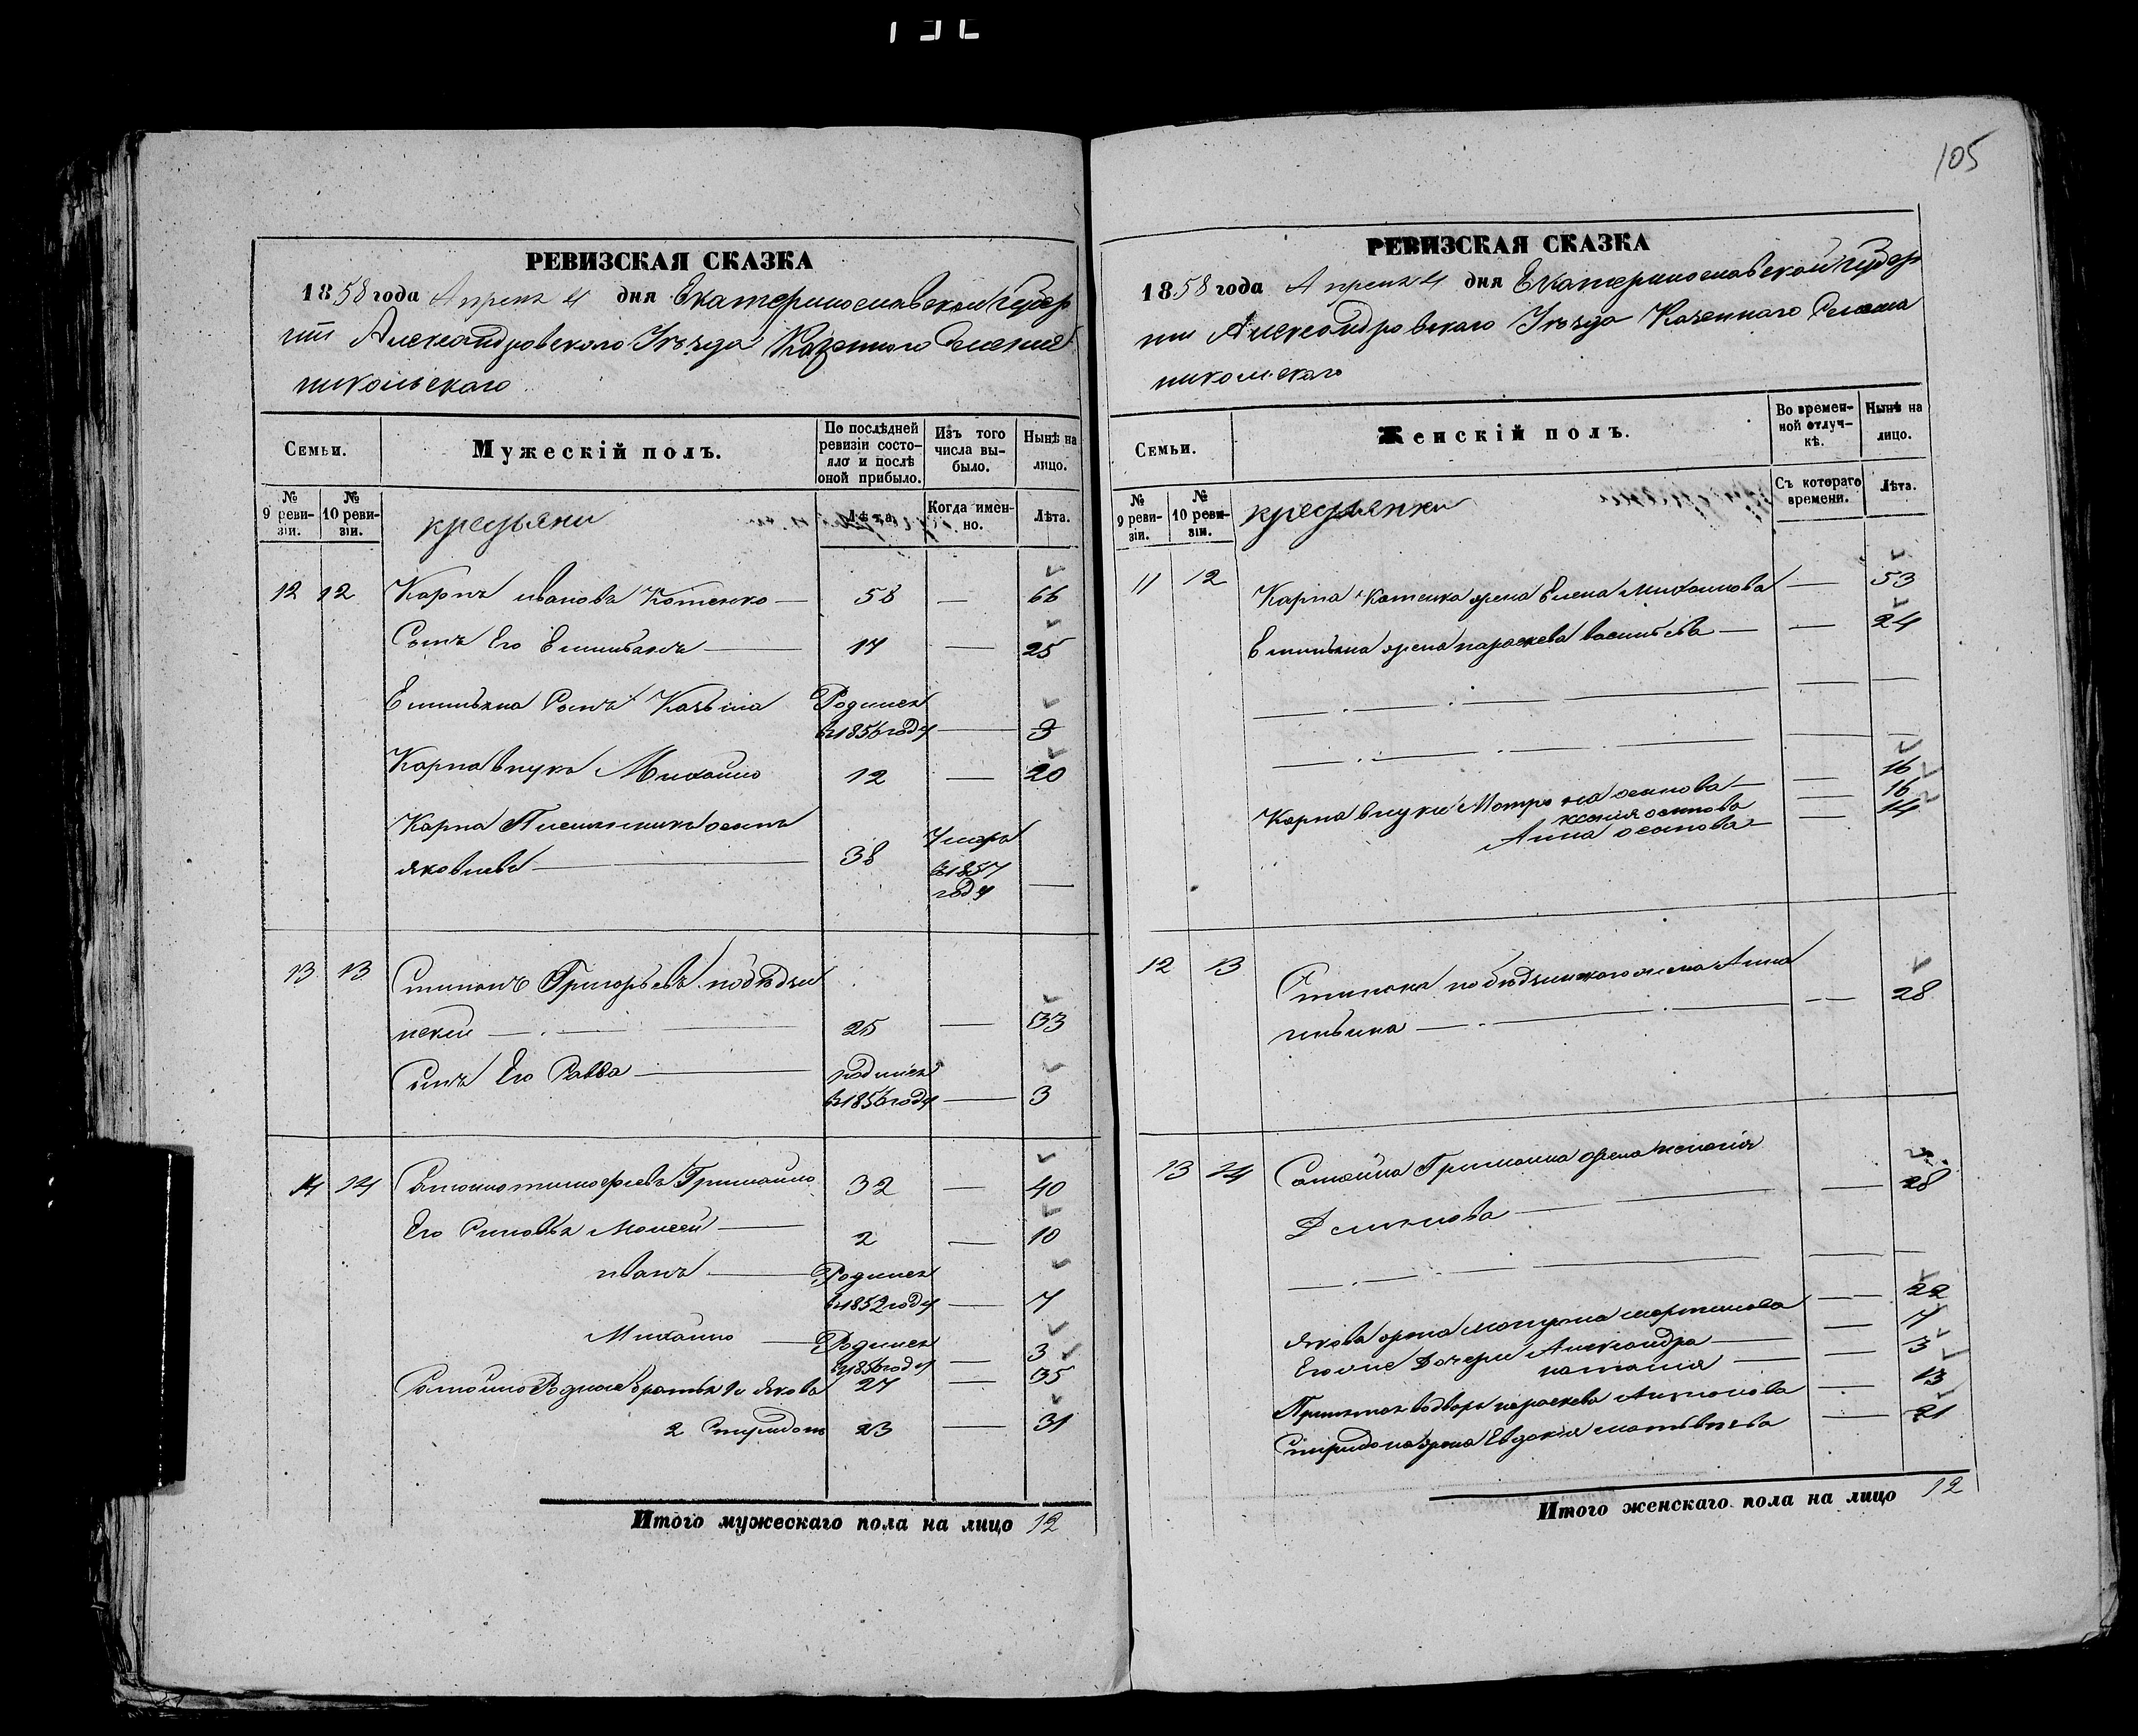 105
РЕВИЗСКАЯ СКАЗКА
1858 года Апреля 4 дня Екатеринославской Губер
нии Александровского Уѣзда Казенного Селения
никольскаго
Семьи.
Мужескій полъ.
По послѣдней ревизіи состояло и послѣ оной прибыло.
Изъ того числа выбыло.
Нынѣ на лицо.
№ 9 ревизіи.
№ 10 ревизіи.
крестьяни
Лѣта.
Когда именно.
Лѣта.
12 12 Карпъ ивановъ Котенко — 58 — 66
Сынъ Его Емильянъ — 17 — 25
Емильяна Сынъ Козьма Родился
въ 1856 году — 3
Карпа внукъ Михайло 12 — 20
Карпа Племянникъ осипъ Умеръ
яковлевъ — 38 в 1857 —
году
13 13 Степанъ Григорьевъ побѣдзи
нский — 25 — 33
Сынъ Его Савва — родился
въ 1856 году — 3
14 14 Самойло тимофеевъ Гримайло 32 — 40
Его Сыновья Моисей — 2 — 10
иванъ — Родился
въ 1852 году — 7
Михайло — Родился
въ 1856 году — 3
Самойло Родные братья 1й яковъ 27 — 35
2 Спиридонъ 23 — 31
Итого мужескаго пола на лицо 12
РЕВИЗСКАЯ СКАЗКА
1858 года Апреля 4 дня Екатеринославской губер
нии Александровскаго Уѣзда Казеннаго Селения
никольскаго
Семьи.
Женскій полъ.
Во временной отлучкѣ.
Нынѣ на лицо.
№ 9 ревизіи.
№ 10 ревизіи.
крестьянки
Съ котораго времени.
Лѣта.
11 12 Карпа Котенка жена Елена Михайлова — 53
Емильяна жена параскева васильева — — 24
Карпа внуки Мотрона осипова — — 16
ксения осипова — 16
Анна осипова — — 14
12 13 Степана побѣдзинскаго жена Анна
ильина — — 28
13 14 Самойла Гримайла жена
Демянова — — 28
якова жена матрона мартинова — 22
Его же Дочери Александра — — 7
наталия — — 3
параскева Антонова — 13
Спиридона жена Евдокия матвѣева — 21
Итого женскаго пола на лицо 12